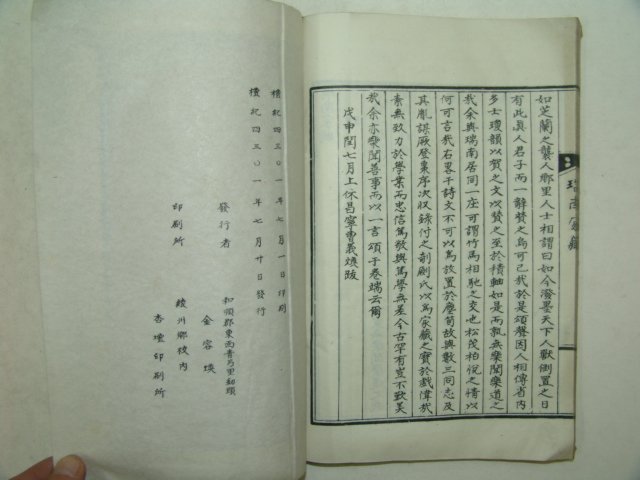 如芝蘭之襲人鄕里人士相謂曰如今潑墨天下人獸倒置之日
有此眞人君子而一辭贊之烏可已我於是頌聲因人相傳省內
多士瓊韻以賀之文以贊之至於積軸如是而孰無樂聞樂道之
我余與瑞南居同一庄可謂竹馬相馳之交也松茂柏悅之情以
何可言我右畧干詩文不可以爲放置於塵蔔故與數三同志及
其胤謀厥登棗序次收錄付之剞劂氏以爲家藏之寶於戱偉哉
素無致力於學業而忠信篤敬與篤學無差今古罕有豈不歎美
我余亦樂聞善事而以一言頌于卷端云爾
戊申閏七月上休昌寧曺義煥跋
瑞南家藏
檀紀四三〇一年七月一日印刷
檀紀四三〇一年七月廿日發行
發行者
和順郡東面靑乃里
金容煐
印刷所
綾州鄕校內
杏壇印刷所